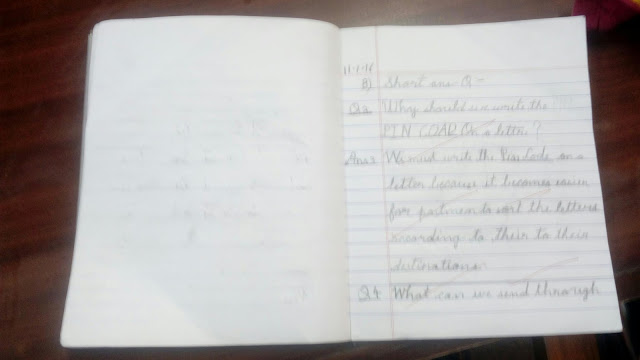 11-1-16
B) Short ans Q -
Q3 Why should we write the
PIN COAD On a letter ?
Ans We must write the Pin Code on a
letter because it becomes easier
for postmen to sort the letters
according to their to their
destinations
Q4 What can we send through